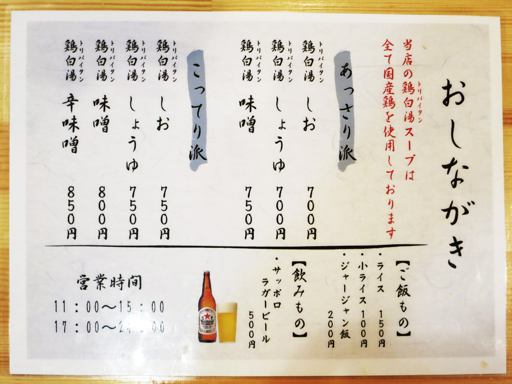 おしながき
当店の鶏白湯スープは
トリパイタン
全て国産鶏を使用しております
あっさり派
鶏白湯 しお 700円
トリパイタン
鶏白湯 しょうゆ 700円
トリパイタン
鶏白湯 味噌 750円
トリパイタン
こってり派
鶏白湯 しお 750円
トリパイタン
鶏白湯 しょうゆ 750円
トリパイタン
鶏白湯 味噌 800円
トリパイタン
鶏白湯 辛味噌 850円
トリパイタン
【ご飯もの】
・ライス 150円
・小ライス 100円
・ジャージャン飯
200円
【飲みもの】
・サッポロ
ラガービール
500円
営業時間
11:00〜15:00
17:00〜